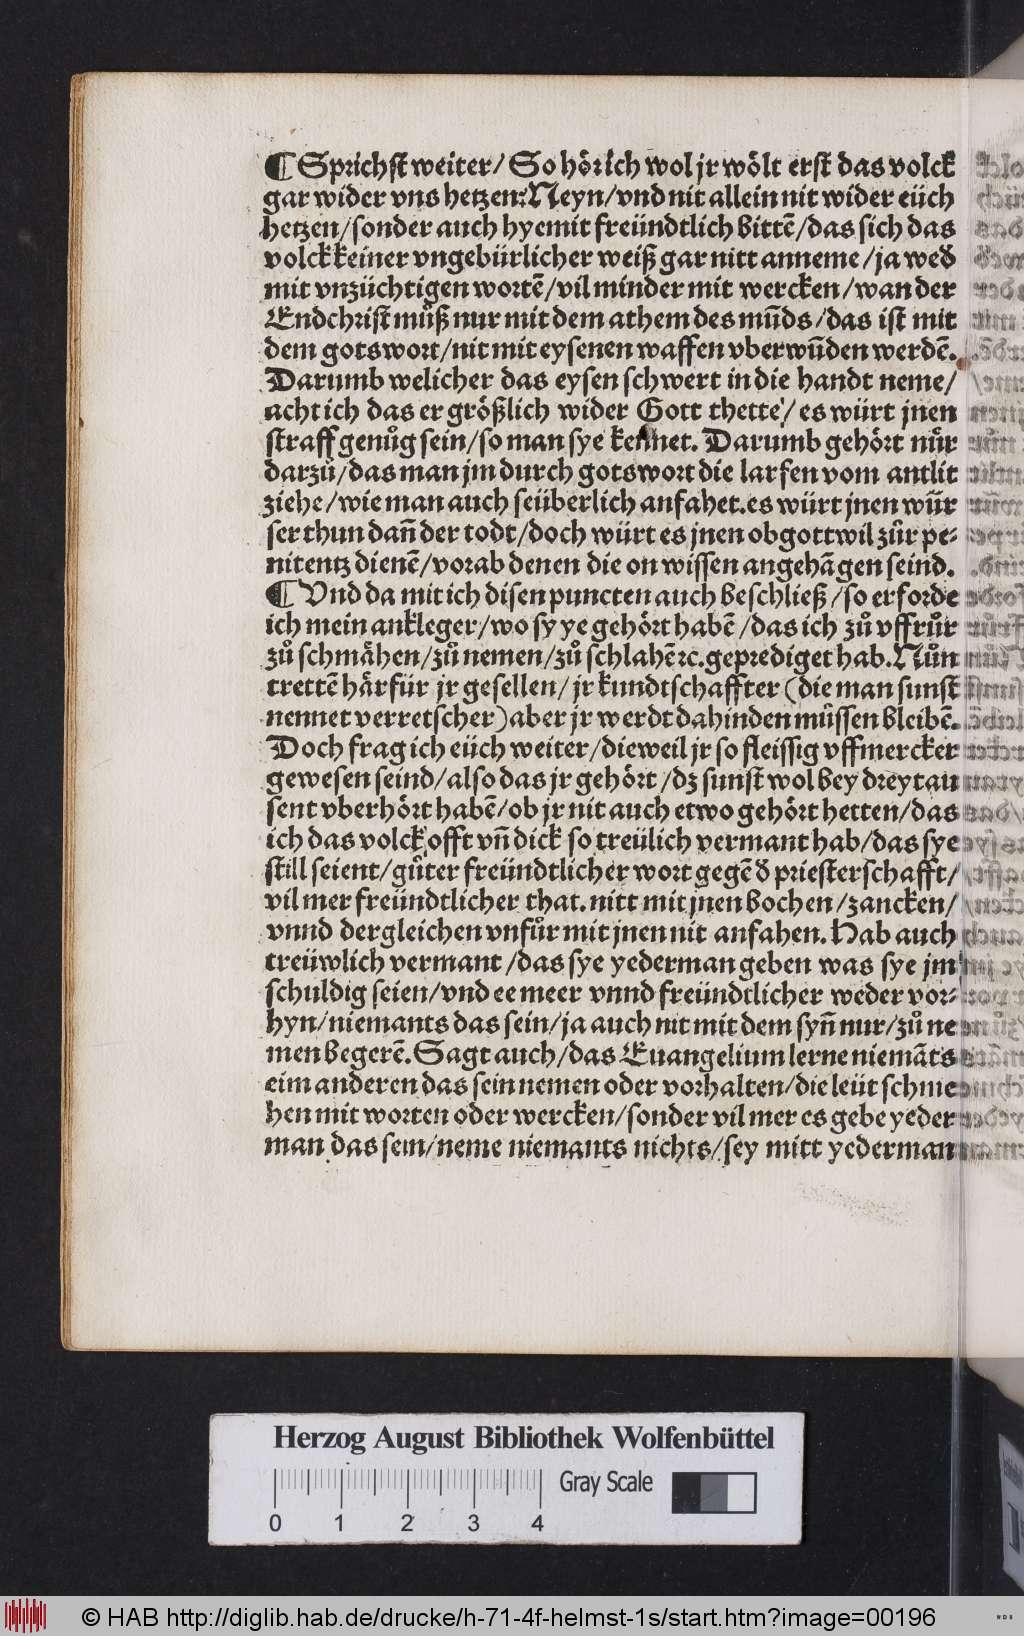 ¶ Sprichst weiter/ So hör ich wol jr wölt erst das volck
gar wider vns hetzen: Neyn/vnd nit allein nit wider eüch
hetzen/sonder auch hyemit freündtlich bittē/das sich das
volck keiner vngebürlicher weiß gar nitt anneme/ja wed̄
mit vnzüchtigen wortē/vil minder mit wercken/wan der
Endchrist mu̇ß nur mit dem athem des mūds/das ist mit
dem gotswort/nit mit eysenen waffen vberwūden werdē.
Darumb welicher das eysen schwert in die handt neme/
acht ich das er größlich wider Gott thette/ es würt jnen
straff genůg sein/so man sye kennet. Darumb gehört nůr
darzů/das man jm durch gotswort die larfen vom antlit
ziehe/wie man auch seüberlich anfahet. es würt jnen wür
ser thun dañ der todt/doch würt es jnen ob gott wil zůr pe-
nitentz dienē/vorab denen die on wissen angehāgen seind.
¶ Vnd da mit ich disen puncten auch beschließ/so erforde
ich mein ankleger/wo sy ye gehört habē/das ich zů vffrůr
zů schmähen/zů nemen/zů schlahē ꝛc. geprediget hab. Nůn
trettē härfür jr gesellen/ jr kundtschaffter (die man sunst
nennet verretscher) aber jr werdt dahinden müssen bleibē.
Doch frag ich eüch weiter/dieweil jr so fleissig vffmercker
gewesen seind/also das jr gehört/dz sunst wol bey drey tau
sent vberhört habē/ob jr nit auch etwo gehört hetten/das
ich das volck offt vñ dick so treülich vermant hab/das sye
still seient/gůter freündtlicher wort gegē d̄ priesterschafft/
vil mer freündtlicher that. nitt mit jnen bochen/zancken/
vnnd dergleichen vnfůr mit jnen nit anfahen. Hab auch
treüwlich vermant/das sye yederman geben was sye jm
schuldig seien/vnd ee meer vnnd freündtlicher weder vor-
hyn/niemants das sein/ja auch nit mit dem syñ nur/zů ne
men begerē. Sagt auch/das Euangelium lerne niemāts
eim anderen das sein nemen oder vorhalten/die leüt schme
hen mit worten oder wercken/sonder vil mer es gebe yeder
man das sein/neme niemants nichts/sey mitt yederman
Herzog August Bibliothek Wolfenbüttel
Gray Scale
0 1 2 3 4
© HAB http://diglib.hab.de/drucke/h-71-4f-helmst-1s/start.htm?image=00196